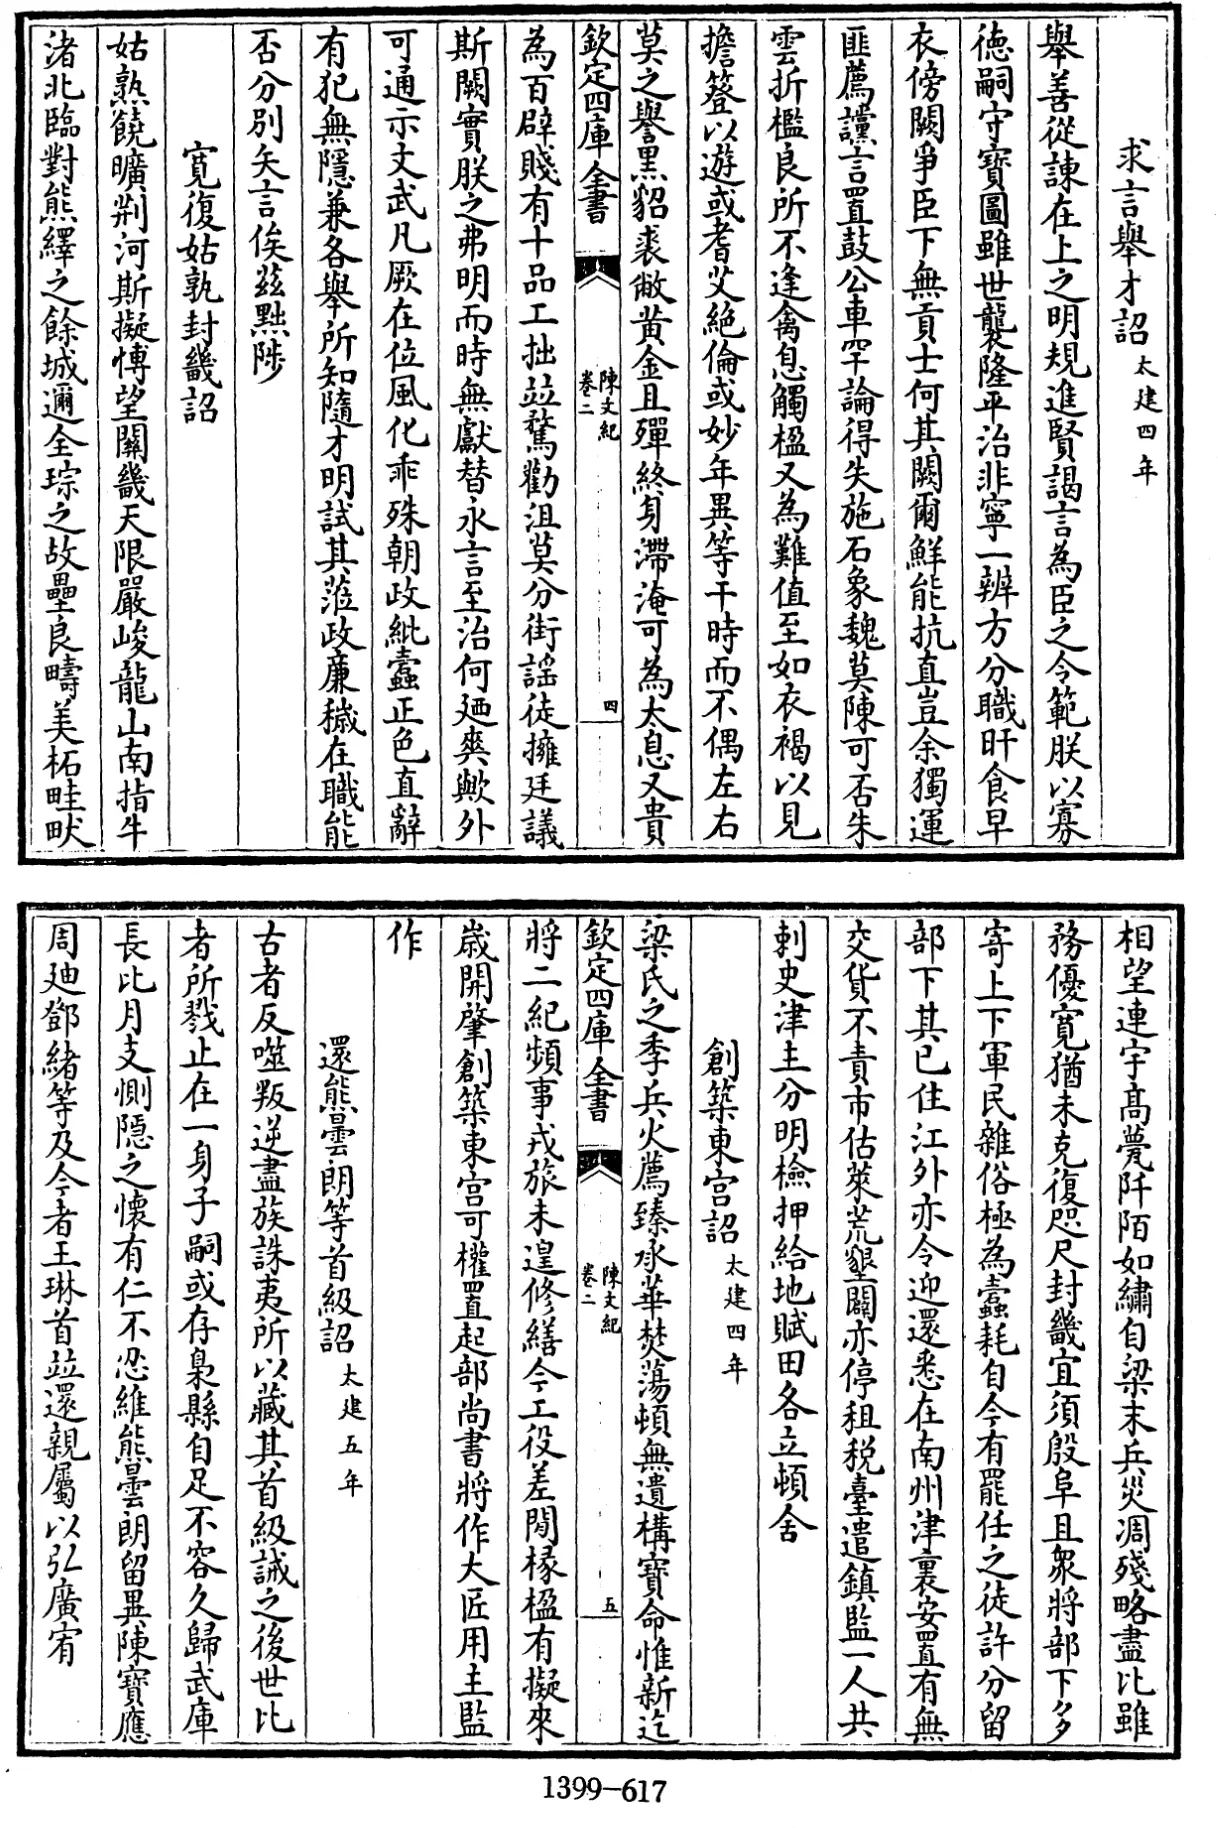 求言舉才詔太建四年
舉善從諫在上之明規進賢謁言為臣之令範朕以寡
徳嗣守寶圖雖世襲隆平治非寧一辨方分職旰食早
衣傍闕爭臣下無貢士何其闕爾鮮能抗直豈余獨運
匪薦讜言置鼓公車罕論得失施石象魏莫陳可否朱
雲折檻良所不逢禽息觸楹又為難值至如衣褐以見
擔簦以遊或耆艾絶倫或妙年異等干時而不偶左右
莫之譽黑貂裘敝黄金且殫終身滯淹可為太息又貴
欽定四庫全書
陳文紀
卷二
四
為百辟賤有十品工拙竝騖勸沮莫分街謡徒擁廷議
斯闕實朕之弗明而時無獻替永言至治何廼爽歟外
可通示文武凡厥在位風化乖殊朝政紕蠹正色直辭
有犯無隱兼各舉所知隨才明試其蒞政廉穢在職能
否分别矢言俟兹黜陟
寛復姑孰封畿詔
姑熟饒曠荆河斯擬愽望關畿天限嚴峻龍山南指牛
渚北臨對熊繹之餘城邇全琮之故壘良疇美柘畦畎
相望連宇髙甍阡陌如繡自梁末兵災凋殘略盡比雖
務優寛猶未克復咫尺封畿宜須殷阜且衆將部下多
寄上下軍民雜俗極為蠹耗自今有罷任之徒許分留
部下其已住江外亦令迎還悉在南州津裏安置有無
交貨不責市估萊荒墾闢亦停租税臺遣鎮監一人共
刺史津主分明檢押給地賦田各立頓舍
創築東宫詔太建四年
梁氏之季兵火薦臻承華焚蕩頓無遺構寶命惟新迄
欽定四庫全書
陳文紀
卷二
五
將二紀頻事戎旅未遑修繕今工役差閒椽楹有擬來
歳開肇創築東宫可權置起部尚書將作大匠用主監
作
還熊曇朗等首級詔太建五年
古者反噬叛逆盡族誅夷所以藏其首級誡之後世比
者所戮止在一身子嗣或存梟縣自足不容久歸武庫
長比月支惻隱之懷有仁不忍維熊曇朗留異陳寶應
周廸鄧緒等及今者王琳首竝還親屬以弘廣宥
1399-617